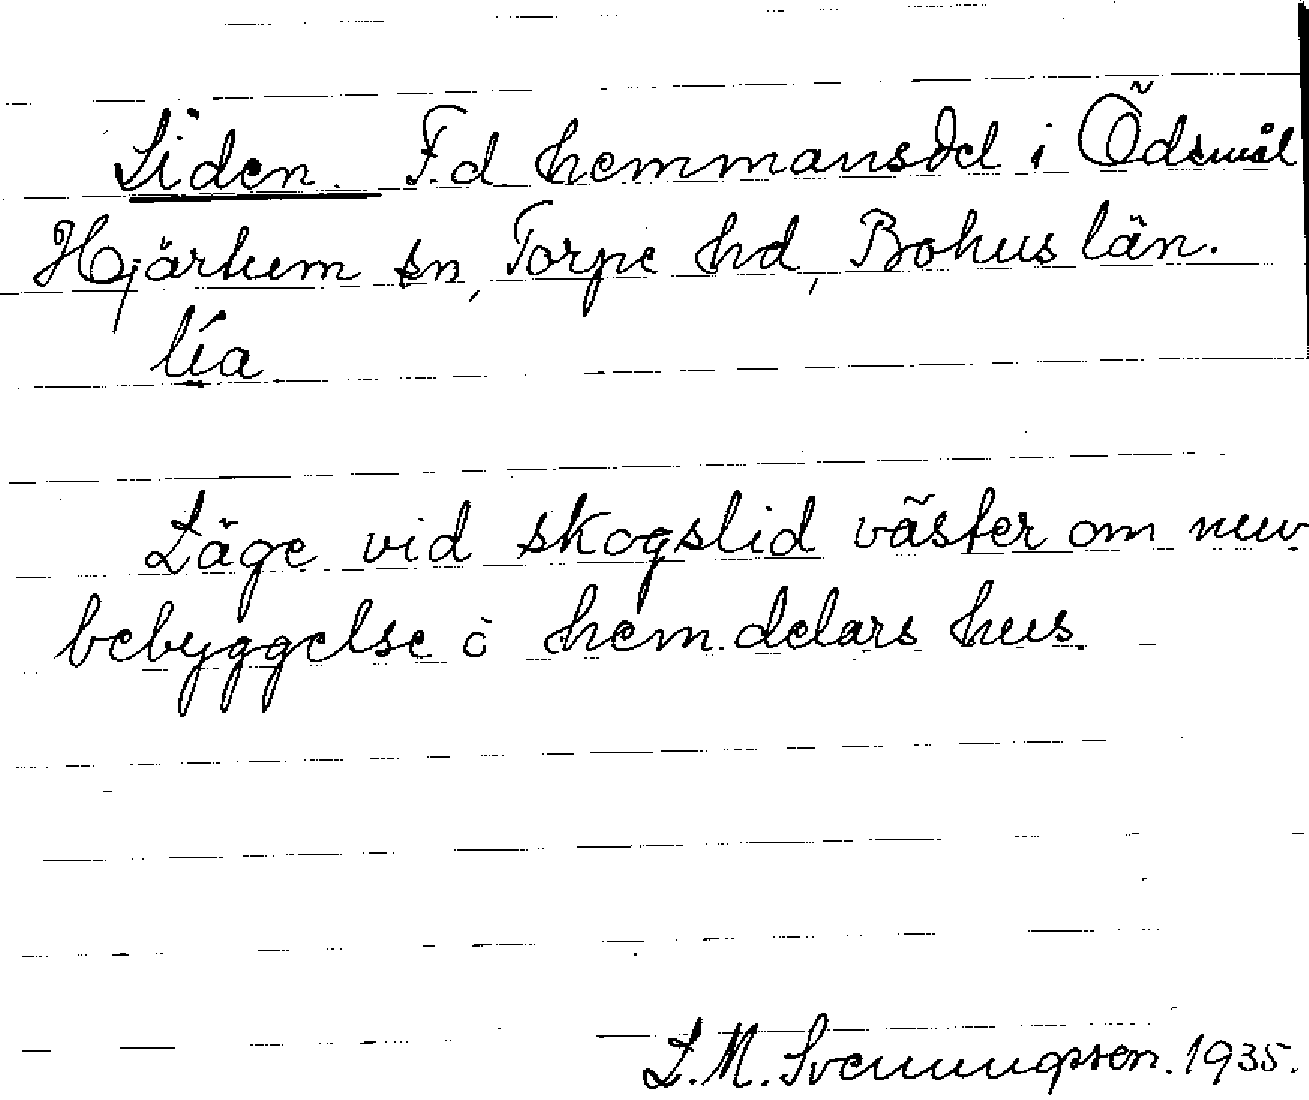 Liden. F.d hemmansdel i Ödsmål
Hjärtum sn, Torpe hd, Bohus län.
lía
Läge vid skogslid väster om nuv
bebyggelse å hem.delars hus.
L.M. Svenungsson. 1935.